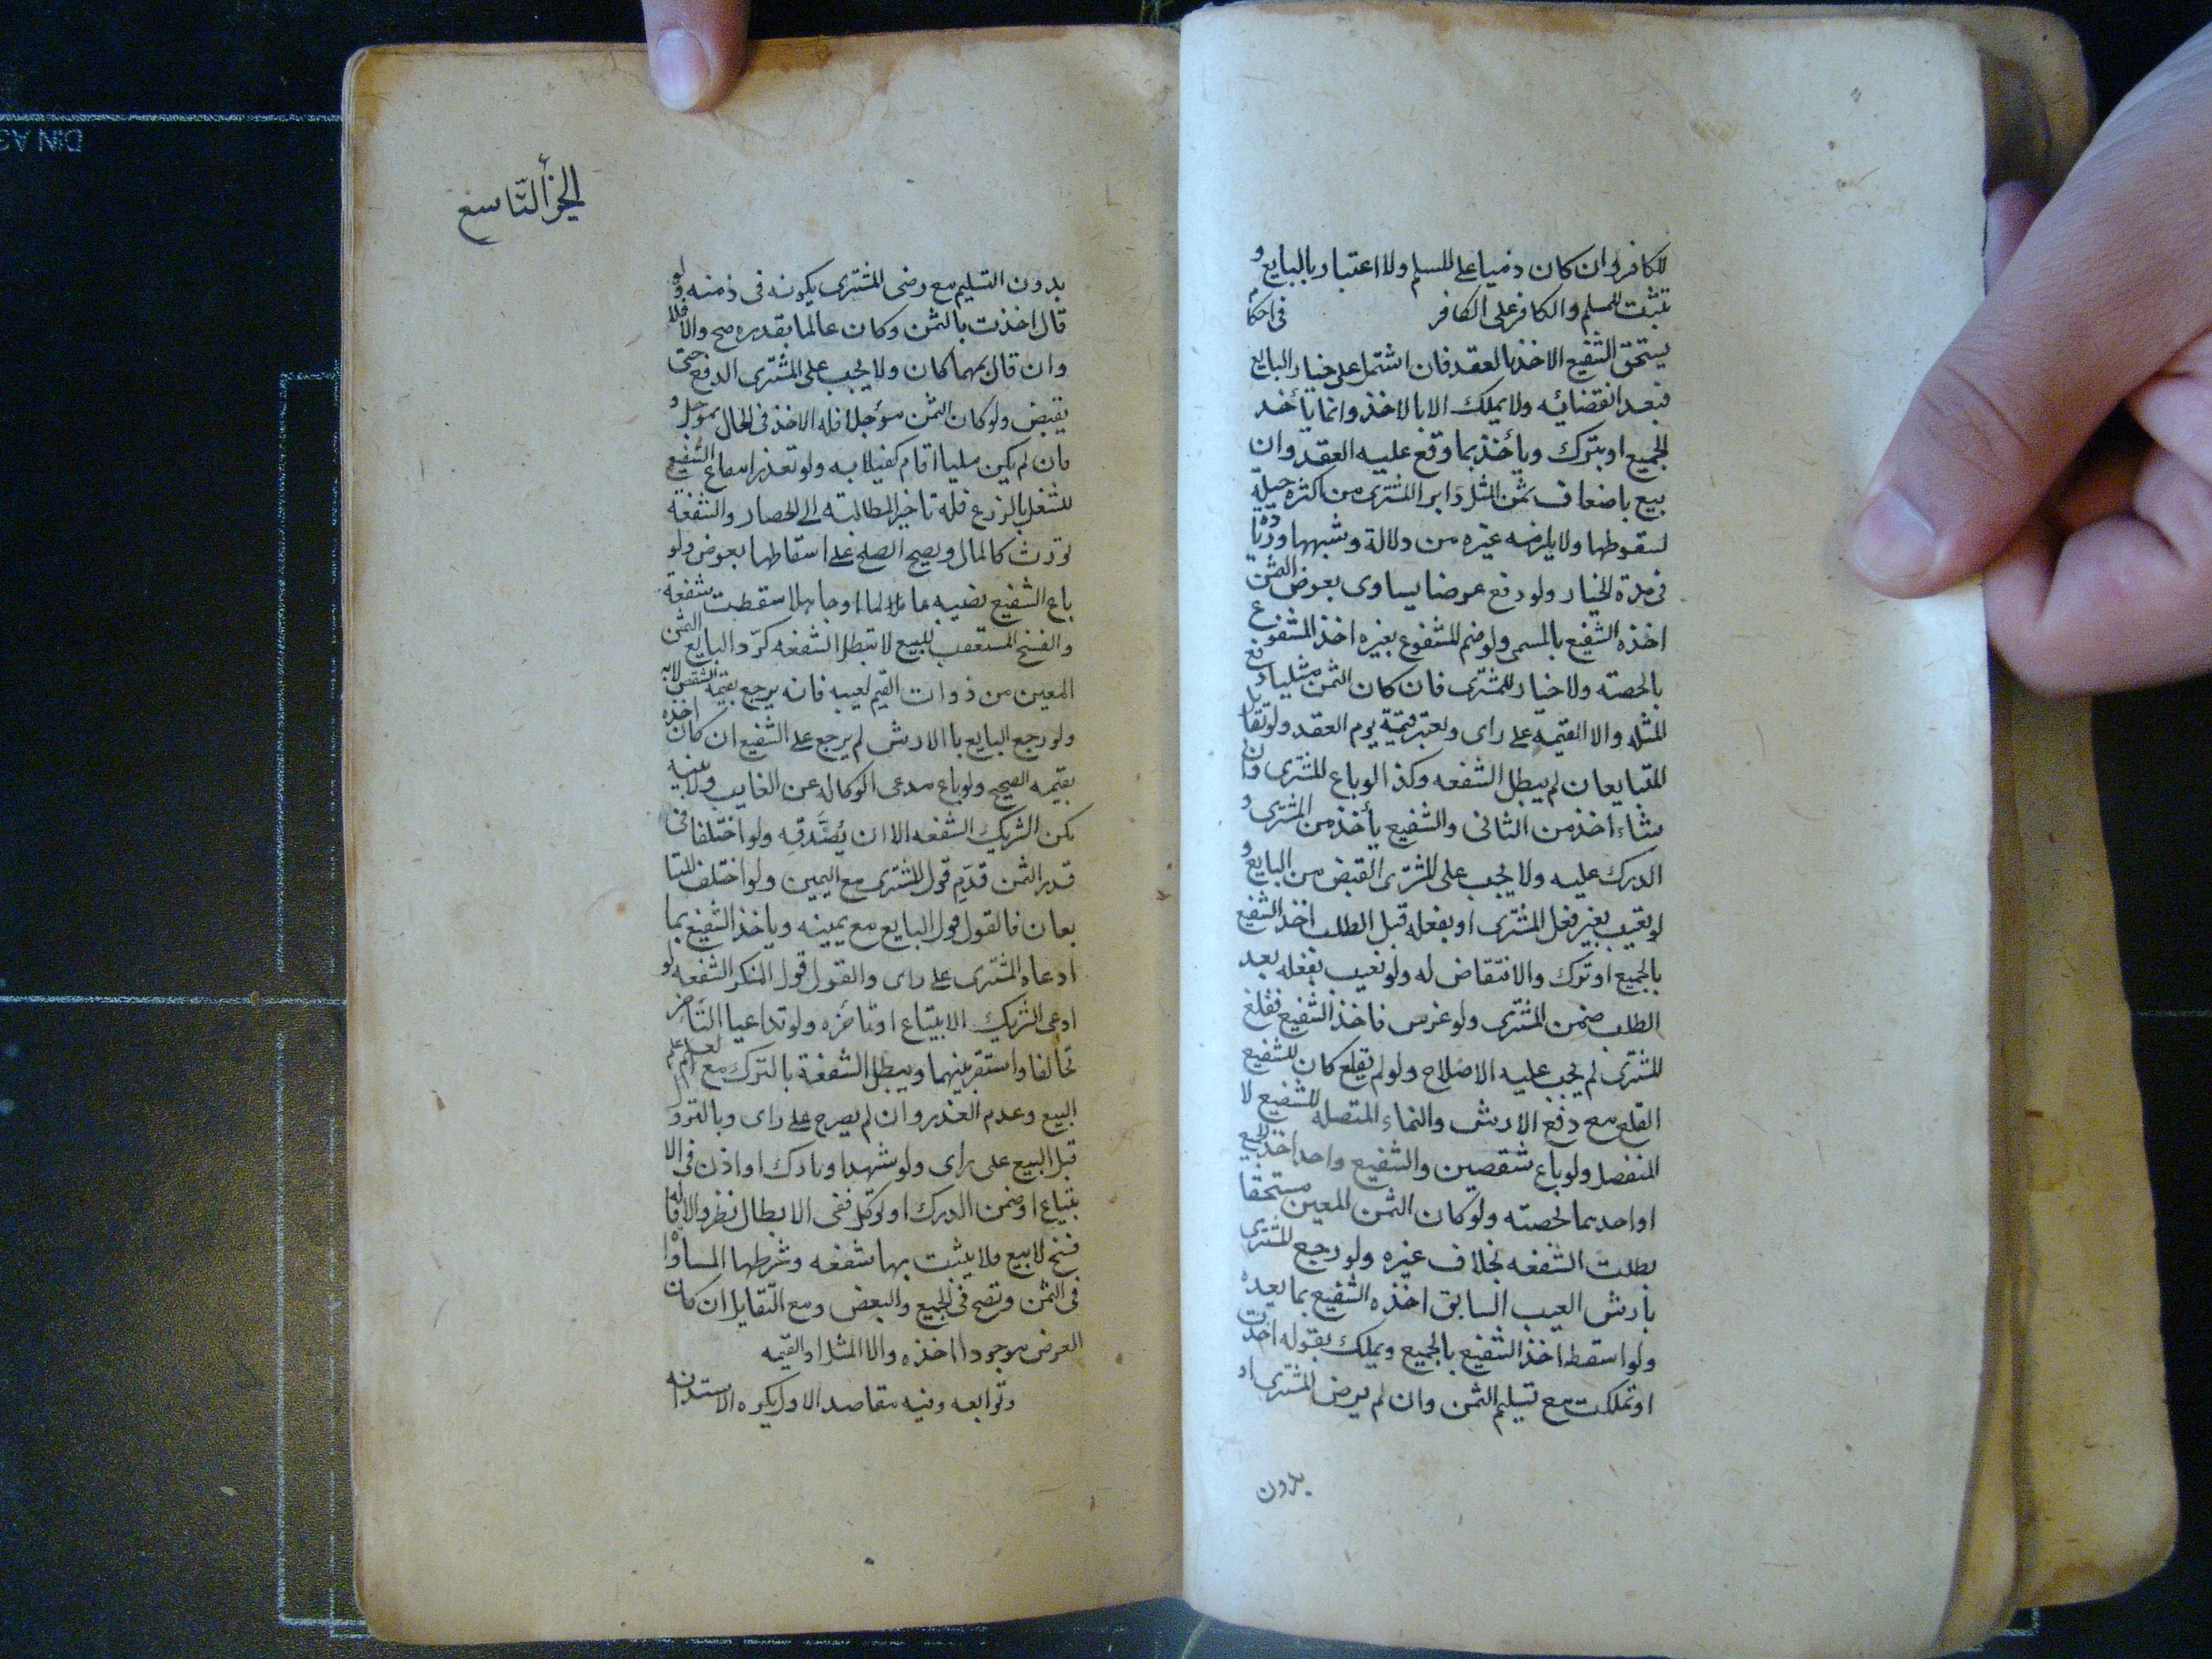 للكافر وان كان ذميا على المسلم ولا اعتبار بالبايع و
تثبت للمسلم والكافر على الكافر في احكام
يستحق الشفيع الاخذ بالعقد فان اشتمل على خيار البايع
فبعد انقضائه ولا يملك الا بالاخذ وانما يأخذ
الجميع او يترك ويأخذ بما وقع عليه العقد وان
بيع باضعاف ثمن المثل وابرا المشترى من اكثره حيلة
لسقوطها ولا يلزمه غيره من دلالة وشبهها و
في مدة الخيار ولو دفع عوضا يساوى بعوض الثمن
اخذه الشفيع بالمسمى ولو ضم المشفوع بغيره اخذ المشفوع
بالحصته ولا خيار للمشترى فان كان الثمن مثليا دفع
المثله والا القيمه على راى وتعتبر قيمة يوم العقد ولو تقايل
المتبايعان لم يبطل الشفعه وكذا لو باع المشترى وان
شاء اخذ من الثانى والشفيع يأخذ من المشترى و
الدرك عليه ولا يجب على المشترى القبض من البايع و
لو تعيب بغير فعل المشترى او بفعله قبل الطلب اخذ الشفيع
بالجميع او ترك والانتقاض له ولو تعيب بفعله بعد
الطلب ضمن المشترى ولو غرس فاخذ الشفيع فقلع
المشترى لم يجب عليه الاصلاح ولو لم يقلع كان للشفيع
القلع مع دفع الارش والنماء المتصله للشفيع لا
المنفصل ولو باع شقصين والشفيع واحد اخذ الجميع
او احدهما بحصته ولو كان الثمن المعين مستحقا
بطلت الشفعه بخلاف غيره ولو رجع المشترى
بارش العيب السابق اخذه الشفيع بما بعده
ولو اسقط اخذ الشفيع بالجميع ويملك بقوله اخذت
او تملكت مع تسليم الثمن وان لم يرض المشترى او
بدون
الجزء التاسع
بدون التسليم مع رضى المشترى بكونه في ذمته ولو
قال اخذت بالثمن وكان عالما بقدره صح والا فلا
وان قال بمهما كان ولا يجب على المشترى الدفع حتى
يقبض ولو كان الثمن مؤجلا فله الاخذ في الحال بمؤجل و
فان لم يكن مليا اقام كفيلا به ولو تعذر انتفاع الشفيع
للشغل بالزرع فله تاخير المطالبته الى الحصاد والشفعة
تورث كالمال ويصح الصلح على اسقاطها بعوض ولو
باع الشفيع نصيبه عالما او جاهلا سقطت شفعة
والفسخ المستعقب للبيع لا تبطل الشفعه كرد البايع الثمن
المعين من ذوات القيم لعيبه فانه يرجع بقيمه الشقص لا به
ولو رجع البايع بالارش لم يرجع على الشفيع ان كان اخذه
بقيمه الصحيح ولو باع مدعى الوكاله عن الغايب ولا بينه
يكن الشريك الشفعه الا ان يصدقه ولو اختلفا في
قدر الثمن قدم قول المشترى مع اليمين ولو اختلف المتبا
يعان فالقول قول البايع مع يمينه وياخذ الشفيع بما
ادعاه المشترى على راى والقول قول المنكر الشفعه لو
ادعى الشريك الابتياع او تأخره ولو تداعيا التأخر
تحالفا واستقر بينهما ويبطل الشفعة بالترك مع علم
البيع وعدم العذر وان لم يصرح على راى وبالترو
قبل البيع على راى ولو شهد او بارك او اذن في الا
بتياع او ضمن الدرك او توكل ففى الابطال نظر والاقاله
فسخ لا بيع فلا يثبت بها شفعه وشرطها المساواة
في الثمن وتصح في الجميع والبعض ومع التقايل ان كان
العوض موجودا اخذه والا المثل او القيمه
وتوابعه وفيه مقاصد الاول يكره الاستدانه